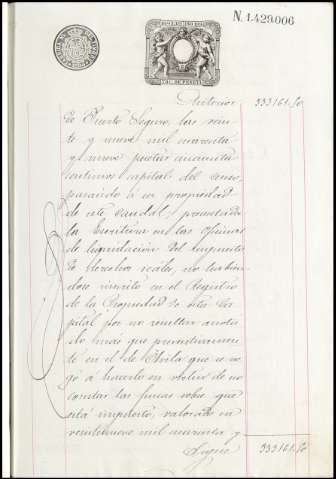 N. 1.429.006
Anterior 333161.50
de Puerto Seguro, las vein
te y nueve mil cuarenta
y nueve pesetas cincuenta
centimos capital del censo,
pasando á su propiedad
de este caudal; presentada
la Escritura en las oficinas
de liquidación del Impuesto
de Derechos reales, no habien
dose inscrito en el Registro
de la Propiedad de esta Ca
pital por no resultar anota
do mas que preventivamen
te en el de Avila que se ne
gó á hacerlo en virtud de no
constar las fincas sobre que
está impuesto, valorado en
veintinueve mil cuarenta y
Sigue 333161.50